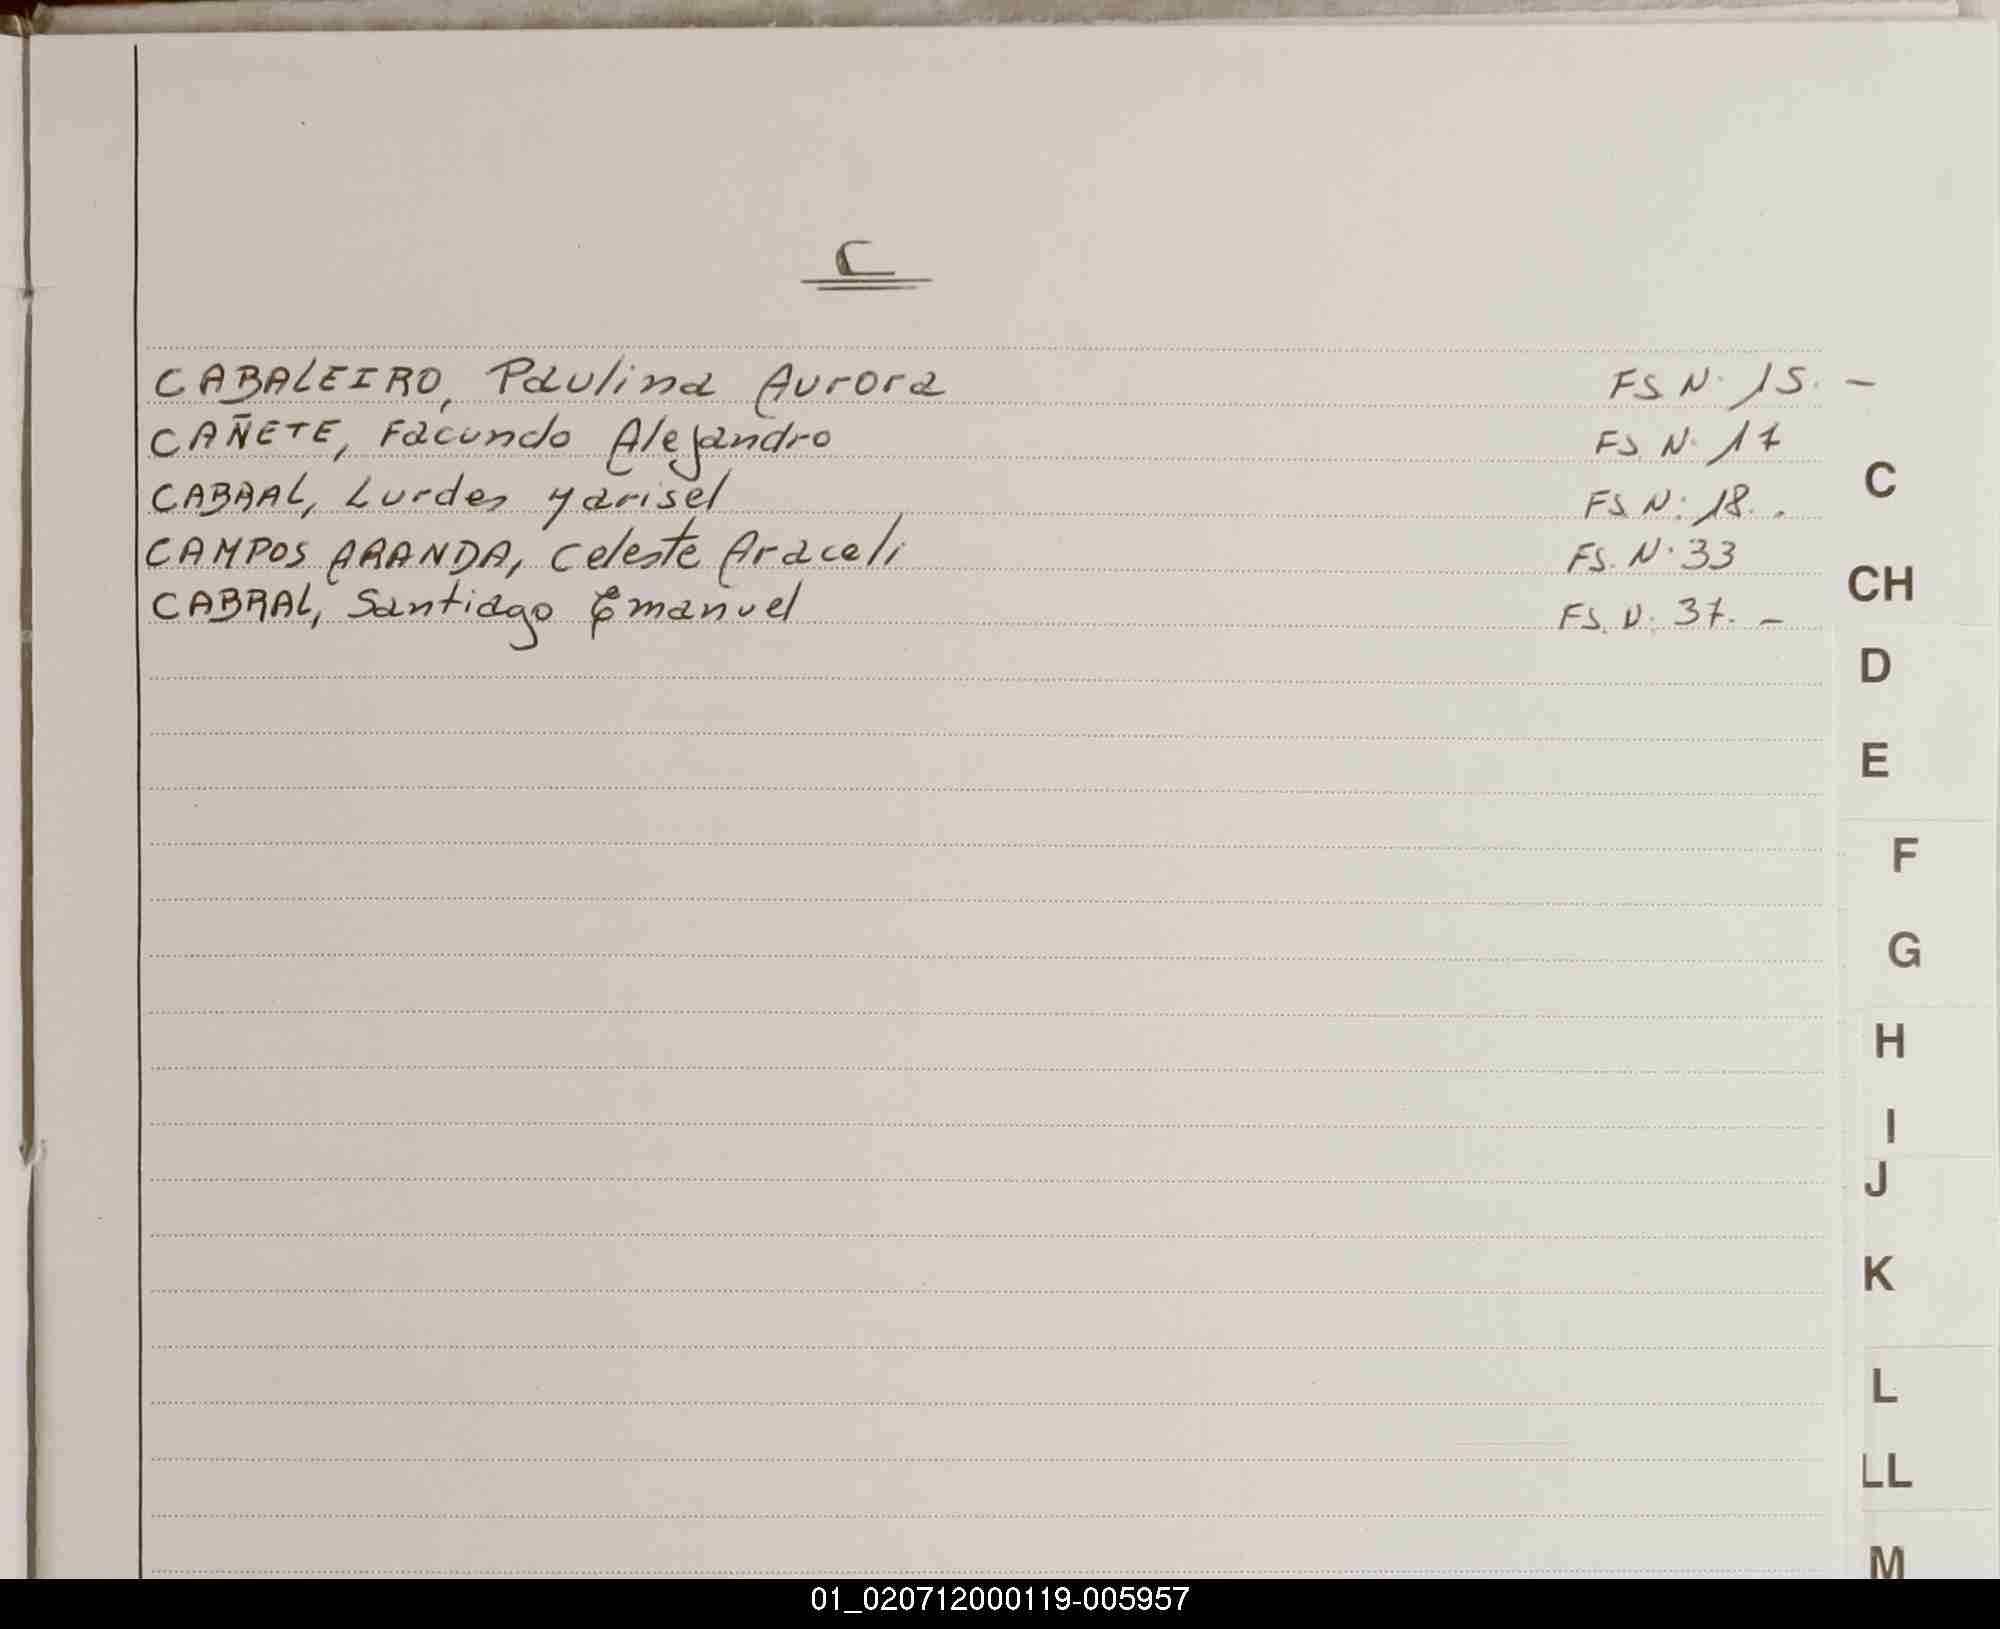 C
CABALEIRO, Paulina Aurora FS N. 15. -
CAÑETE, Facundo Alejandro FS. N. 17
CABRAL, Lurdes Yarisel FS N: 18. .
CAMPOS ARANDA, Celeste Araceli FS. N. 33
CABRAL, Santiago Emanuel FS. N. 37. -
C
CH
D
E
F
G
H
I
J
K
L
LL
M
01_020712000119-005957